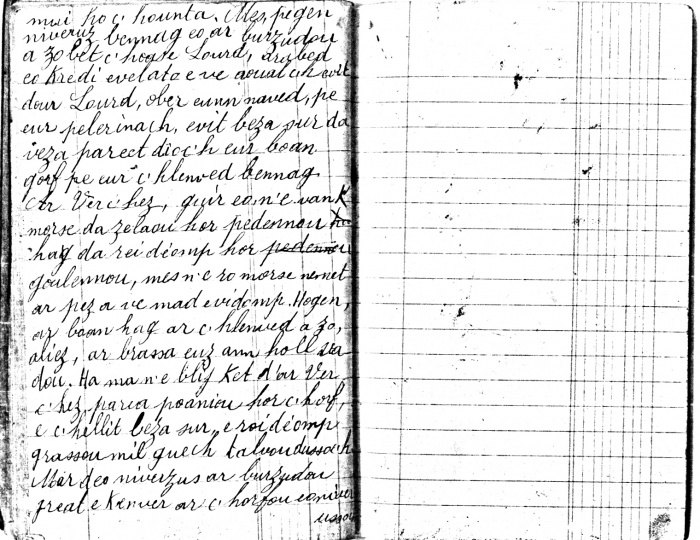 mui ho c'hounta. Mes, pegen
niveruz bennag eo ar burzudou
a zo bet c'hoase Lourd, arabed
eo Kredi evelato e ve aoualc'h evit
dour Lourd, ober eunn naved, pe
eur pelerinach, evit beza sur da
veza pareet dioc'h eur boan
gorf pe eur c'hlenved bennag
Ar Verc'hez, guir eo, n'e van K
morse da zelaou hor pedennou
hag da rei déomp hor pedennou
goulennou, mes n'e ro morse nemet
ar pez a ve mad evidomp. Hogen,
ar boan hag ar c'hlenved a zo,
aliez, ar brassa euz ann holl va
dou. Ha ma n'e blij Ket d'ar Ver
c'hez parea poaniou hor c'horf,
e c'hellit beza sur, e roi déomp
grassou mil guech talvoudussoc'h
Mar deo niverzus ar burzudou
great e Kenver ar c'horfou eo niver
ussoc'h